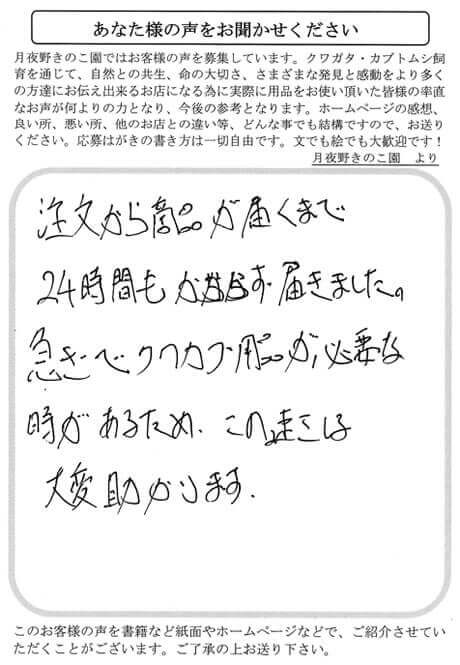 あなた様の声をお聞かせください
月夜野きのこ園ではお客様の声を募集しています。クワガタ・カブトムシ飼
育を通じて、自然との共生、命の大切さ、さまざまな発見と感動をより多く
の方達にお伝え出来るお店になる為に実際に用品をお使い頂いた皆様の率直
なお声が何よりの力となり、今後の参考となります。ホームページの感想、
良い所、悪い所、他のお店との違い等、どんな事でも結構ですので、お送り
ください。応募はがきの書き方は一切自由です。文でも絵でも大歓迎です！
月夜野きのこ園　より
注文から商品が届くまで
24時間もかからず届きました。
急ぎでクワカブ用品が必要な
時があるため、この速さは
大変助かります.
このお客様の声を書籍など紙面やホームページなどで、ご紹介させてい
ただくことがございます。ご了承の上お送り下さい。